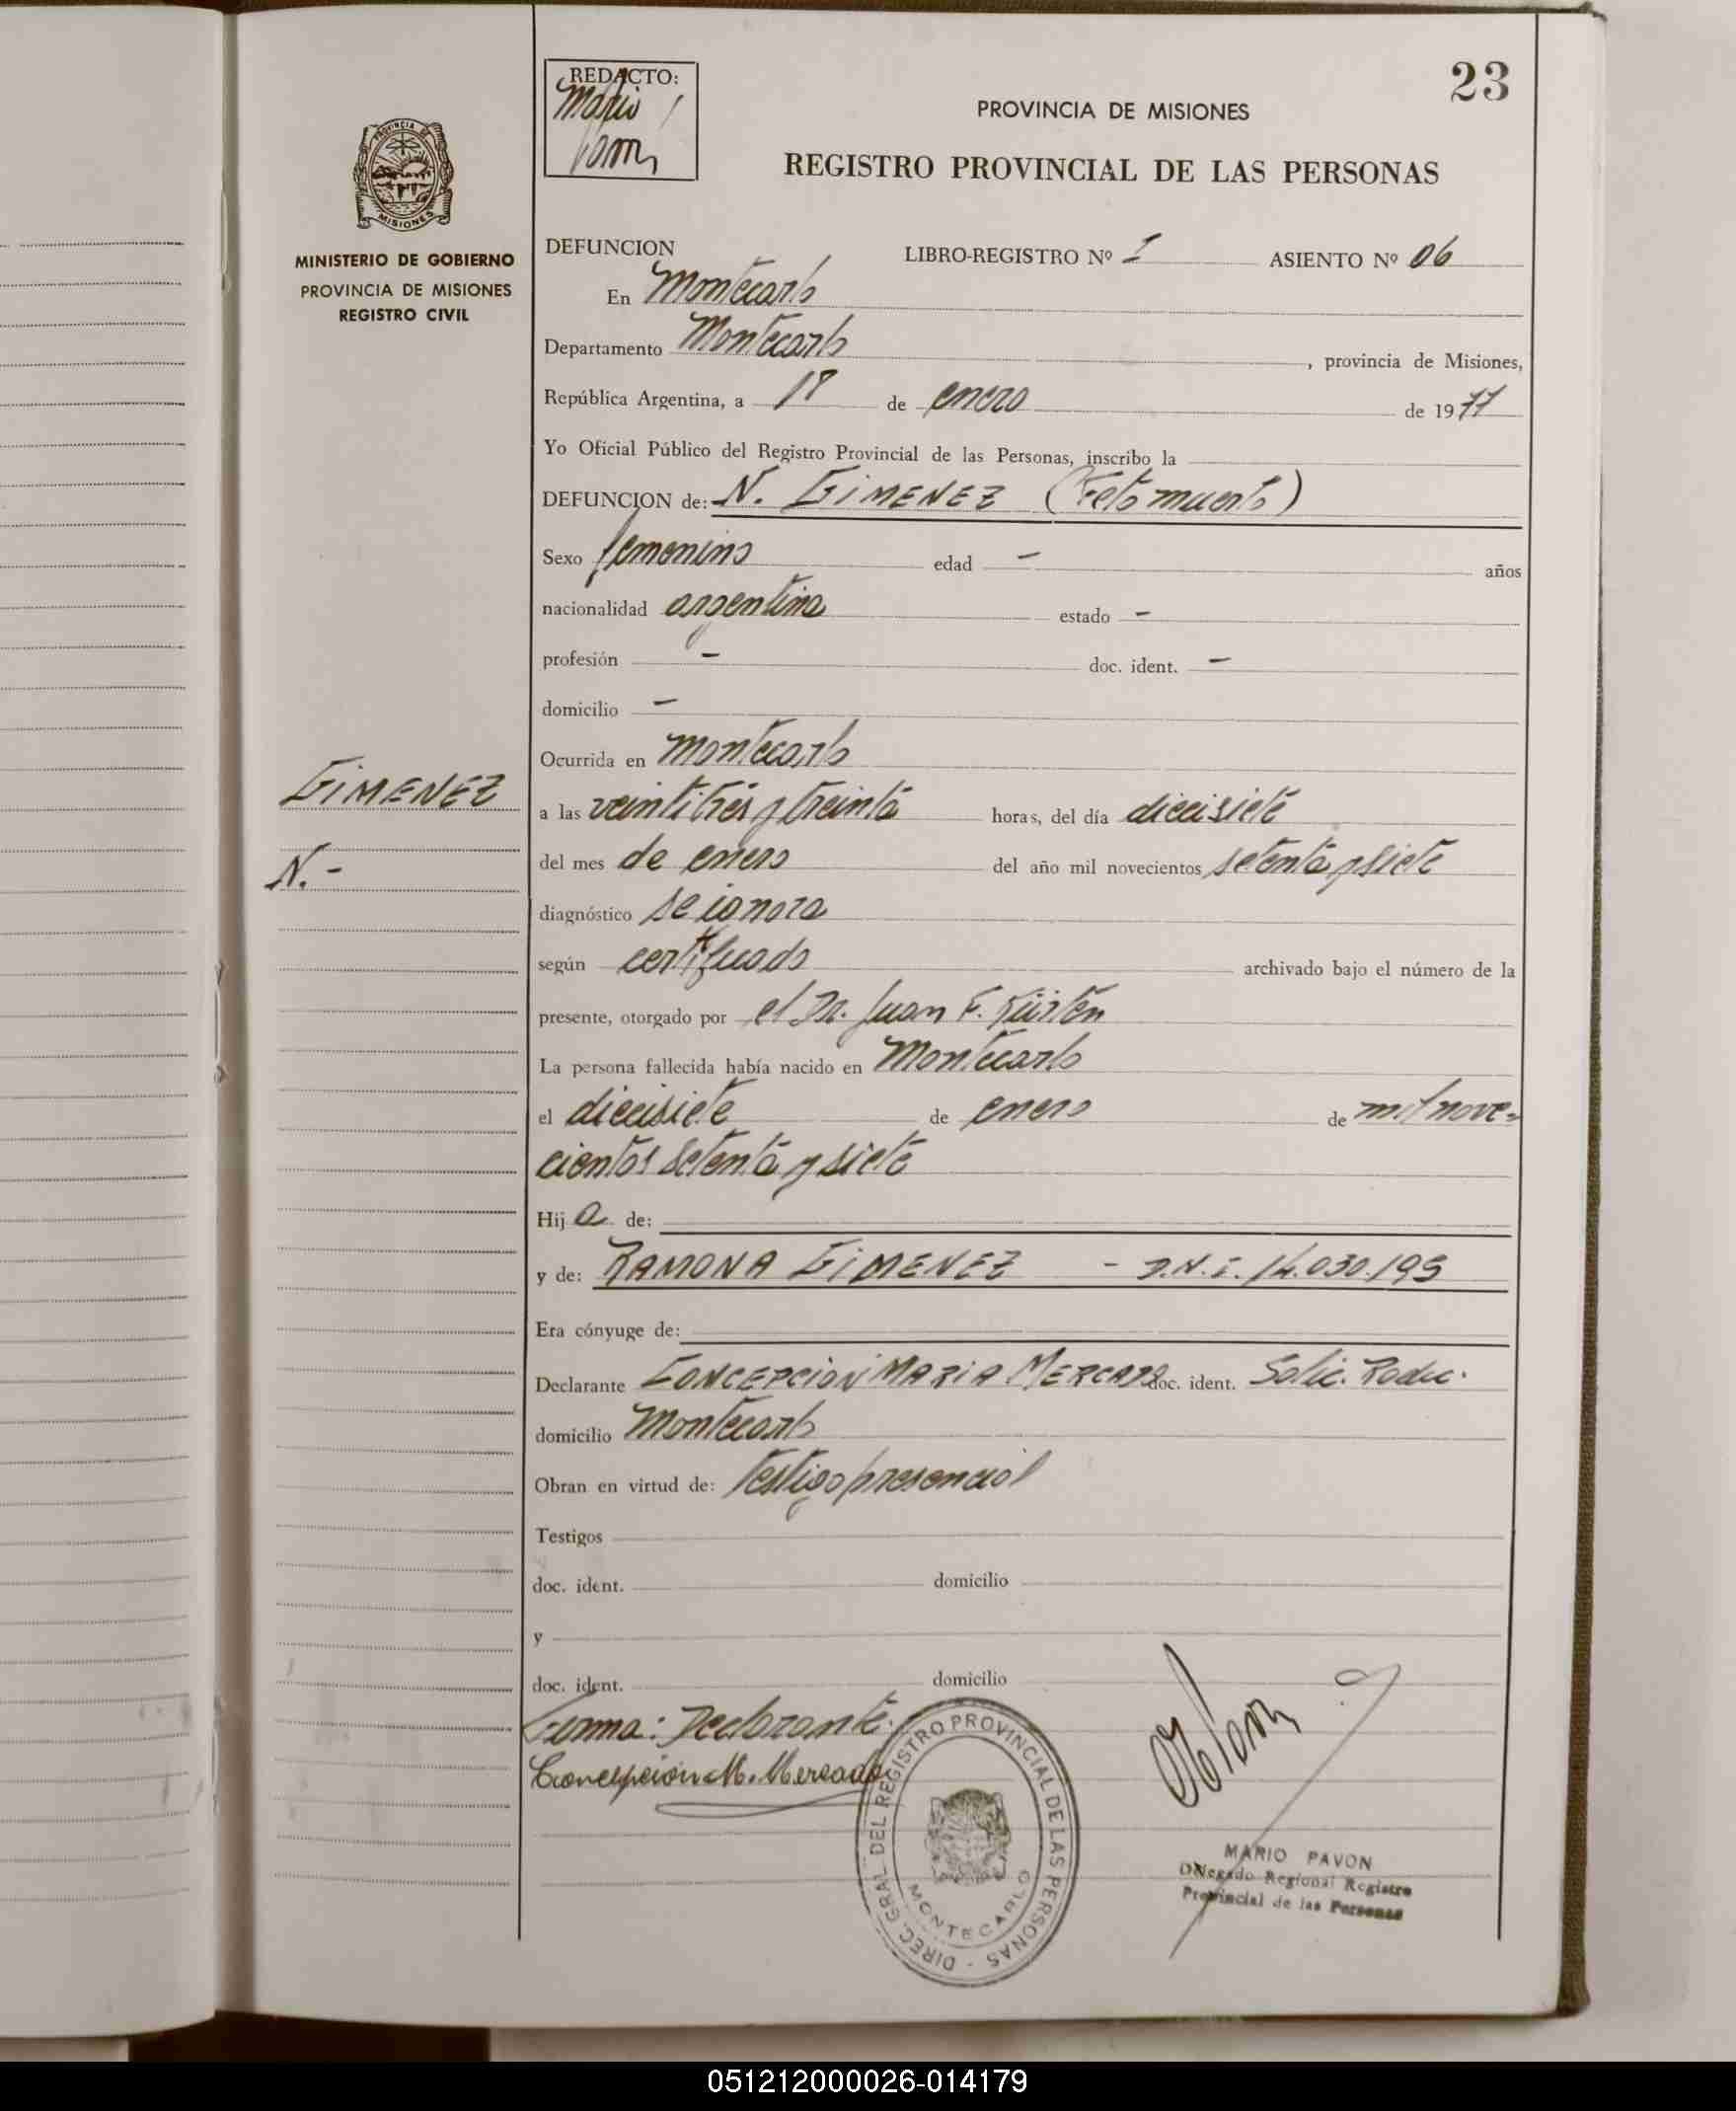 REDACTO:
Mario
Pavon
23
PROVINCIA DE MISIONES
REGISTRO PROVINCIAL DE LAS PERSONAS
PROVINCIA DE
MISIONES
MINISTERIO DE GOBIERNO
PROVINCIA DE MISIONES
REGISTRO CIVIL
DEFUNCION LIBRO-REGISTRO Nº I ASIENTO Nº 06
En Montecarlo
Departamento Montecarlo , provincia de Misiones,
República Argentina, a 18 de enero de 1977
Yo Oficial Público del Registro Provincial de las Personas, inscribo la
DEFUNCION de: N. GIMENEZ (Feto muerto)
Sexo femenino edad - años
nacionalidad argentina estado -
profesión - doc. ident. -
domicilio -
Ocurrida en Montecarlo
GIMENEZ
N.-
a las veintitrés y treinta horas, del día diecisiete
del mes de enero del año mil novecientos setenta y siete
diagnóstico se ignora
según certificado archivado bajo el número de la
presente, otorgado por el Dr. Juan F. Kürten
La persona fallecida había nacido en Montecarlo
el diecisiete de enero de mil nove-
cientos setenta y siete
Hij a de:
y de: RAMONA GIMENEZ - D.N.I. 14.030.199
Era cónyuge de:
Declarante CONCEPCION MARIA MERCADO doc. ident. Solic. Radic.
domicilio Montecarlo
Obran en virtud de: Testigo presencial
Testigos
doc. ident. domicilio
y
doc. ident. domicilio
Firma: Declarante.
Concepción M. Mercado
DIREC. GRAL. DEL REGISTRO PROVINCIAL DE LAS PERSONAS -
MONTECARLO
MARIO PAVON
Delegado Regional Registro
Provincial de las Personas
051212000026-014179